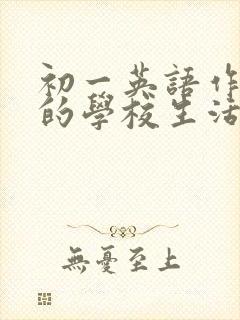 初一英語作
的學校生活
無憂至上